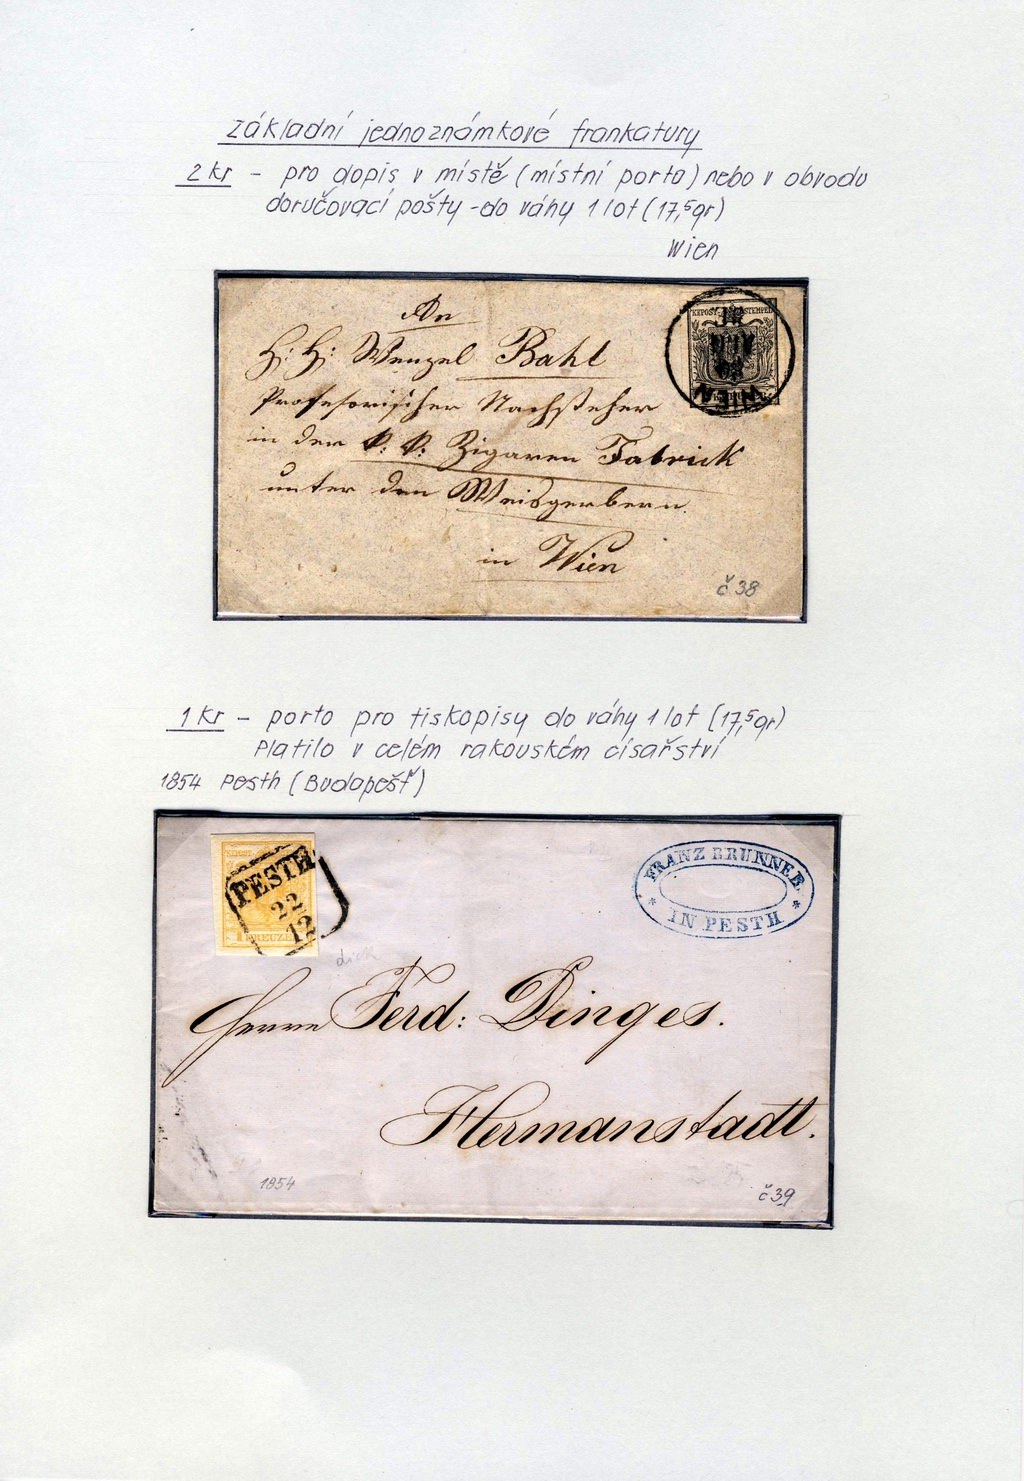 Základní jednoznámkové frankatury
2 kr - pro dopis v místě (místní porto) nebo v obvodu
doručovací pošty - do váhy 1 lot (17,5gr)
Wien
An
H: H: Wenzel Bahl
Profesorischer Nachseher
in der k. k. Zigaren Fabrick
unter den Weisgerbern.
in Wien
WIEN
č 38
1 kr - porto pro tiskopisy do váhy 1 lot (17,5gr)
Platilo v celém rakouském císařství
1854 Pesth (Budapešť)
PESTH
22
12
KREUZER
FRANZ BRUNNER
IN PESTH
dick
Herrn Ferd: Dinges.
Hermanstadt.
1854
č 39